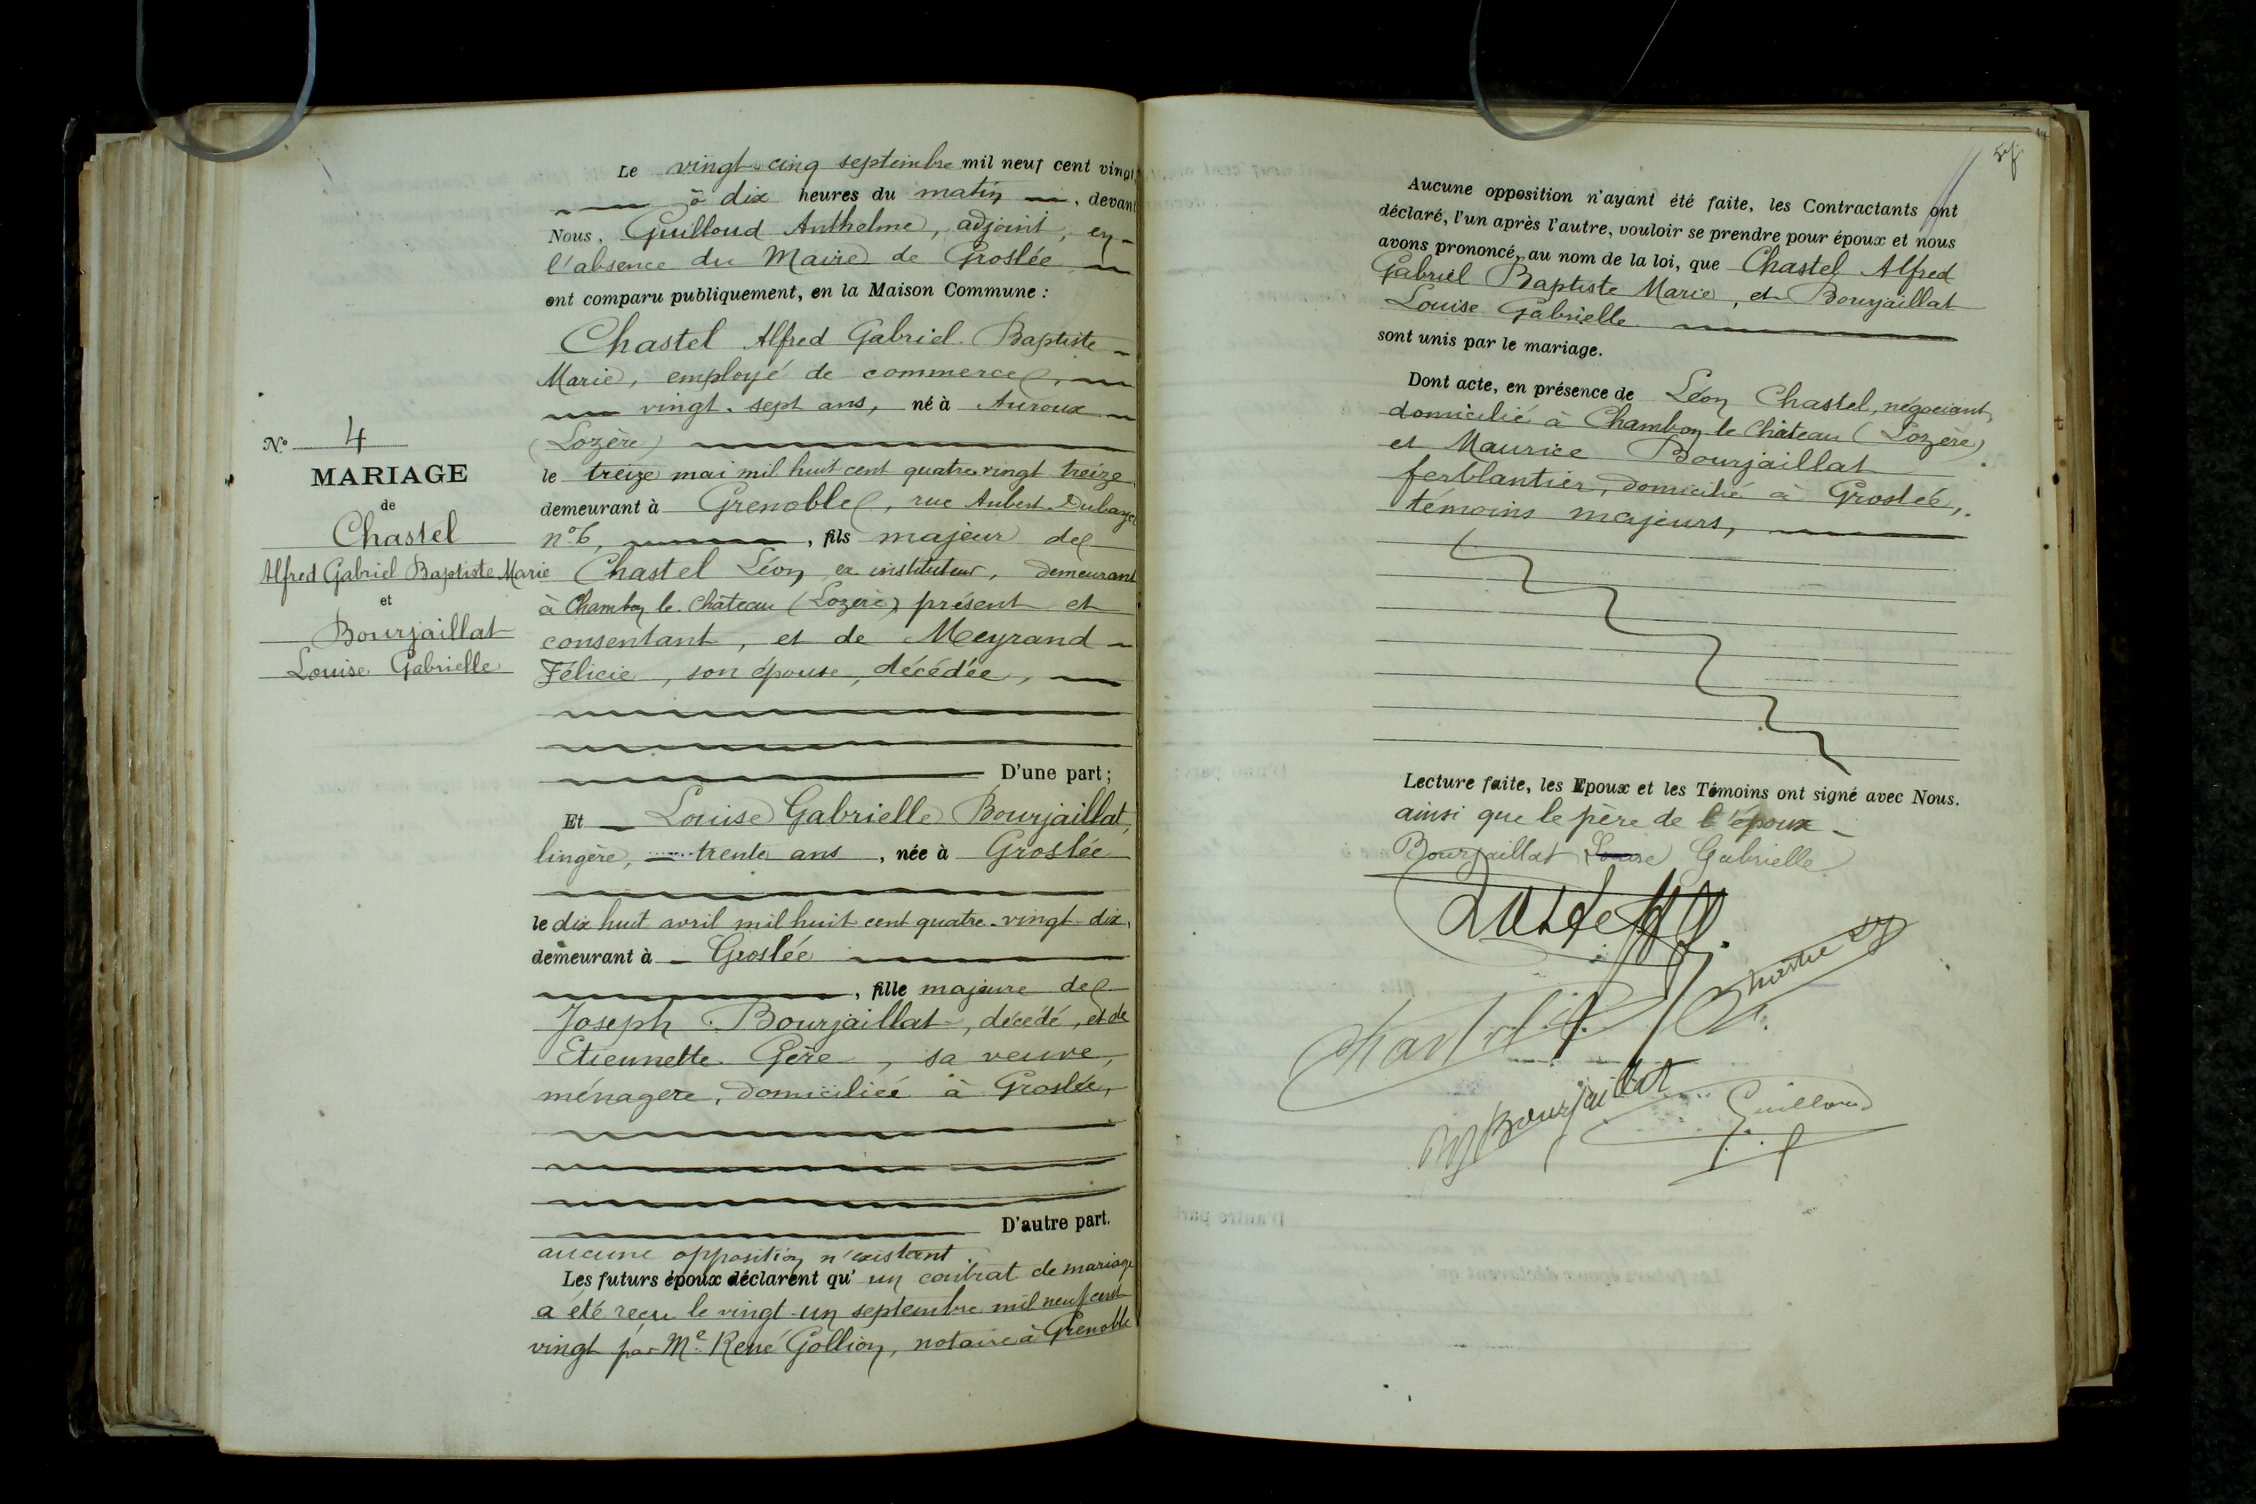 N° 4
MARIAGE
de
Chastel
Alfred Gabriel Baptiste Marie
et
Bourjaillat
Louise Gabrielle
Le vingt-cinq septembre mil neuf cent vingt
à dix heures du matin, devant
Nous, Guilloud Anthelme, adjoint, en
l'absence du Maire de Groslée
ont comparu publiquement, en la Maison Commune :
Chastel Alfred Gabriel Baptiste
Marie, employé de commerce,
vingt-sept ans, né à Auroux
(Lozère)
le treize mai mil huit cent quatre vingt treize
demeurant à Grenoble, rue Aubert-Dubayet
n° 6, , fils majeur de
Chastel Léon, ex instituteur, demeurant
à Chambon le Château (Lozère), présent et
consentant, et de Meyrand
Félicie, son épouse, décédée,
D'une part ;
Et Louise Gabrielle Bourjaillat,
lingère, trente ans, née à Groslée
le dix huit avril mil huit cent quatre-vingt-dix,
demeurant à Groslée
, fille majeure de
Joseph Bourjaillat, décédé, et de
Etiennette Gère, sa veuve,
ménagère, domiciliée à Groslée,
D'autre part.
aucune opposition n'existant.
Les futurs époux déclarent qu' un contrat de mariage
a été reçu le vingt-un septembre mil neuf cent
vingt par Me René Gollion, notaire à Grenoble
Aucune opposition n'ayant été faite, les Contractants ont
déclaré, l'un après l'autre, vouloir se prendre pour époux et nous
avons prononcé, au nom de la loi, que Chastel Alfred
Gabriel Baptiste Marie, et Bourjaillat
Louise Gabrielle
sont unis par le mariage.
Dont acte, en présence de Léon Chastel, négociant,
domicilié à Chambon le Château (Lozère)
et Maurice Bourjaillat
ferblantier, domicilié à Groslée,
témoins majeurs,
Lecture faite, les Epoux et les Témoins ont signé avec Nous.
ainsi que le père de l'époux
Bourjaillat Louise Gabrielle
M Bourjaillat
Guilloud